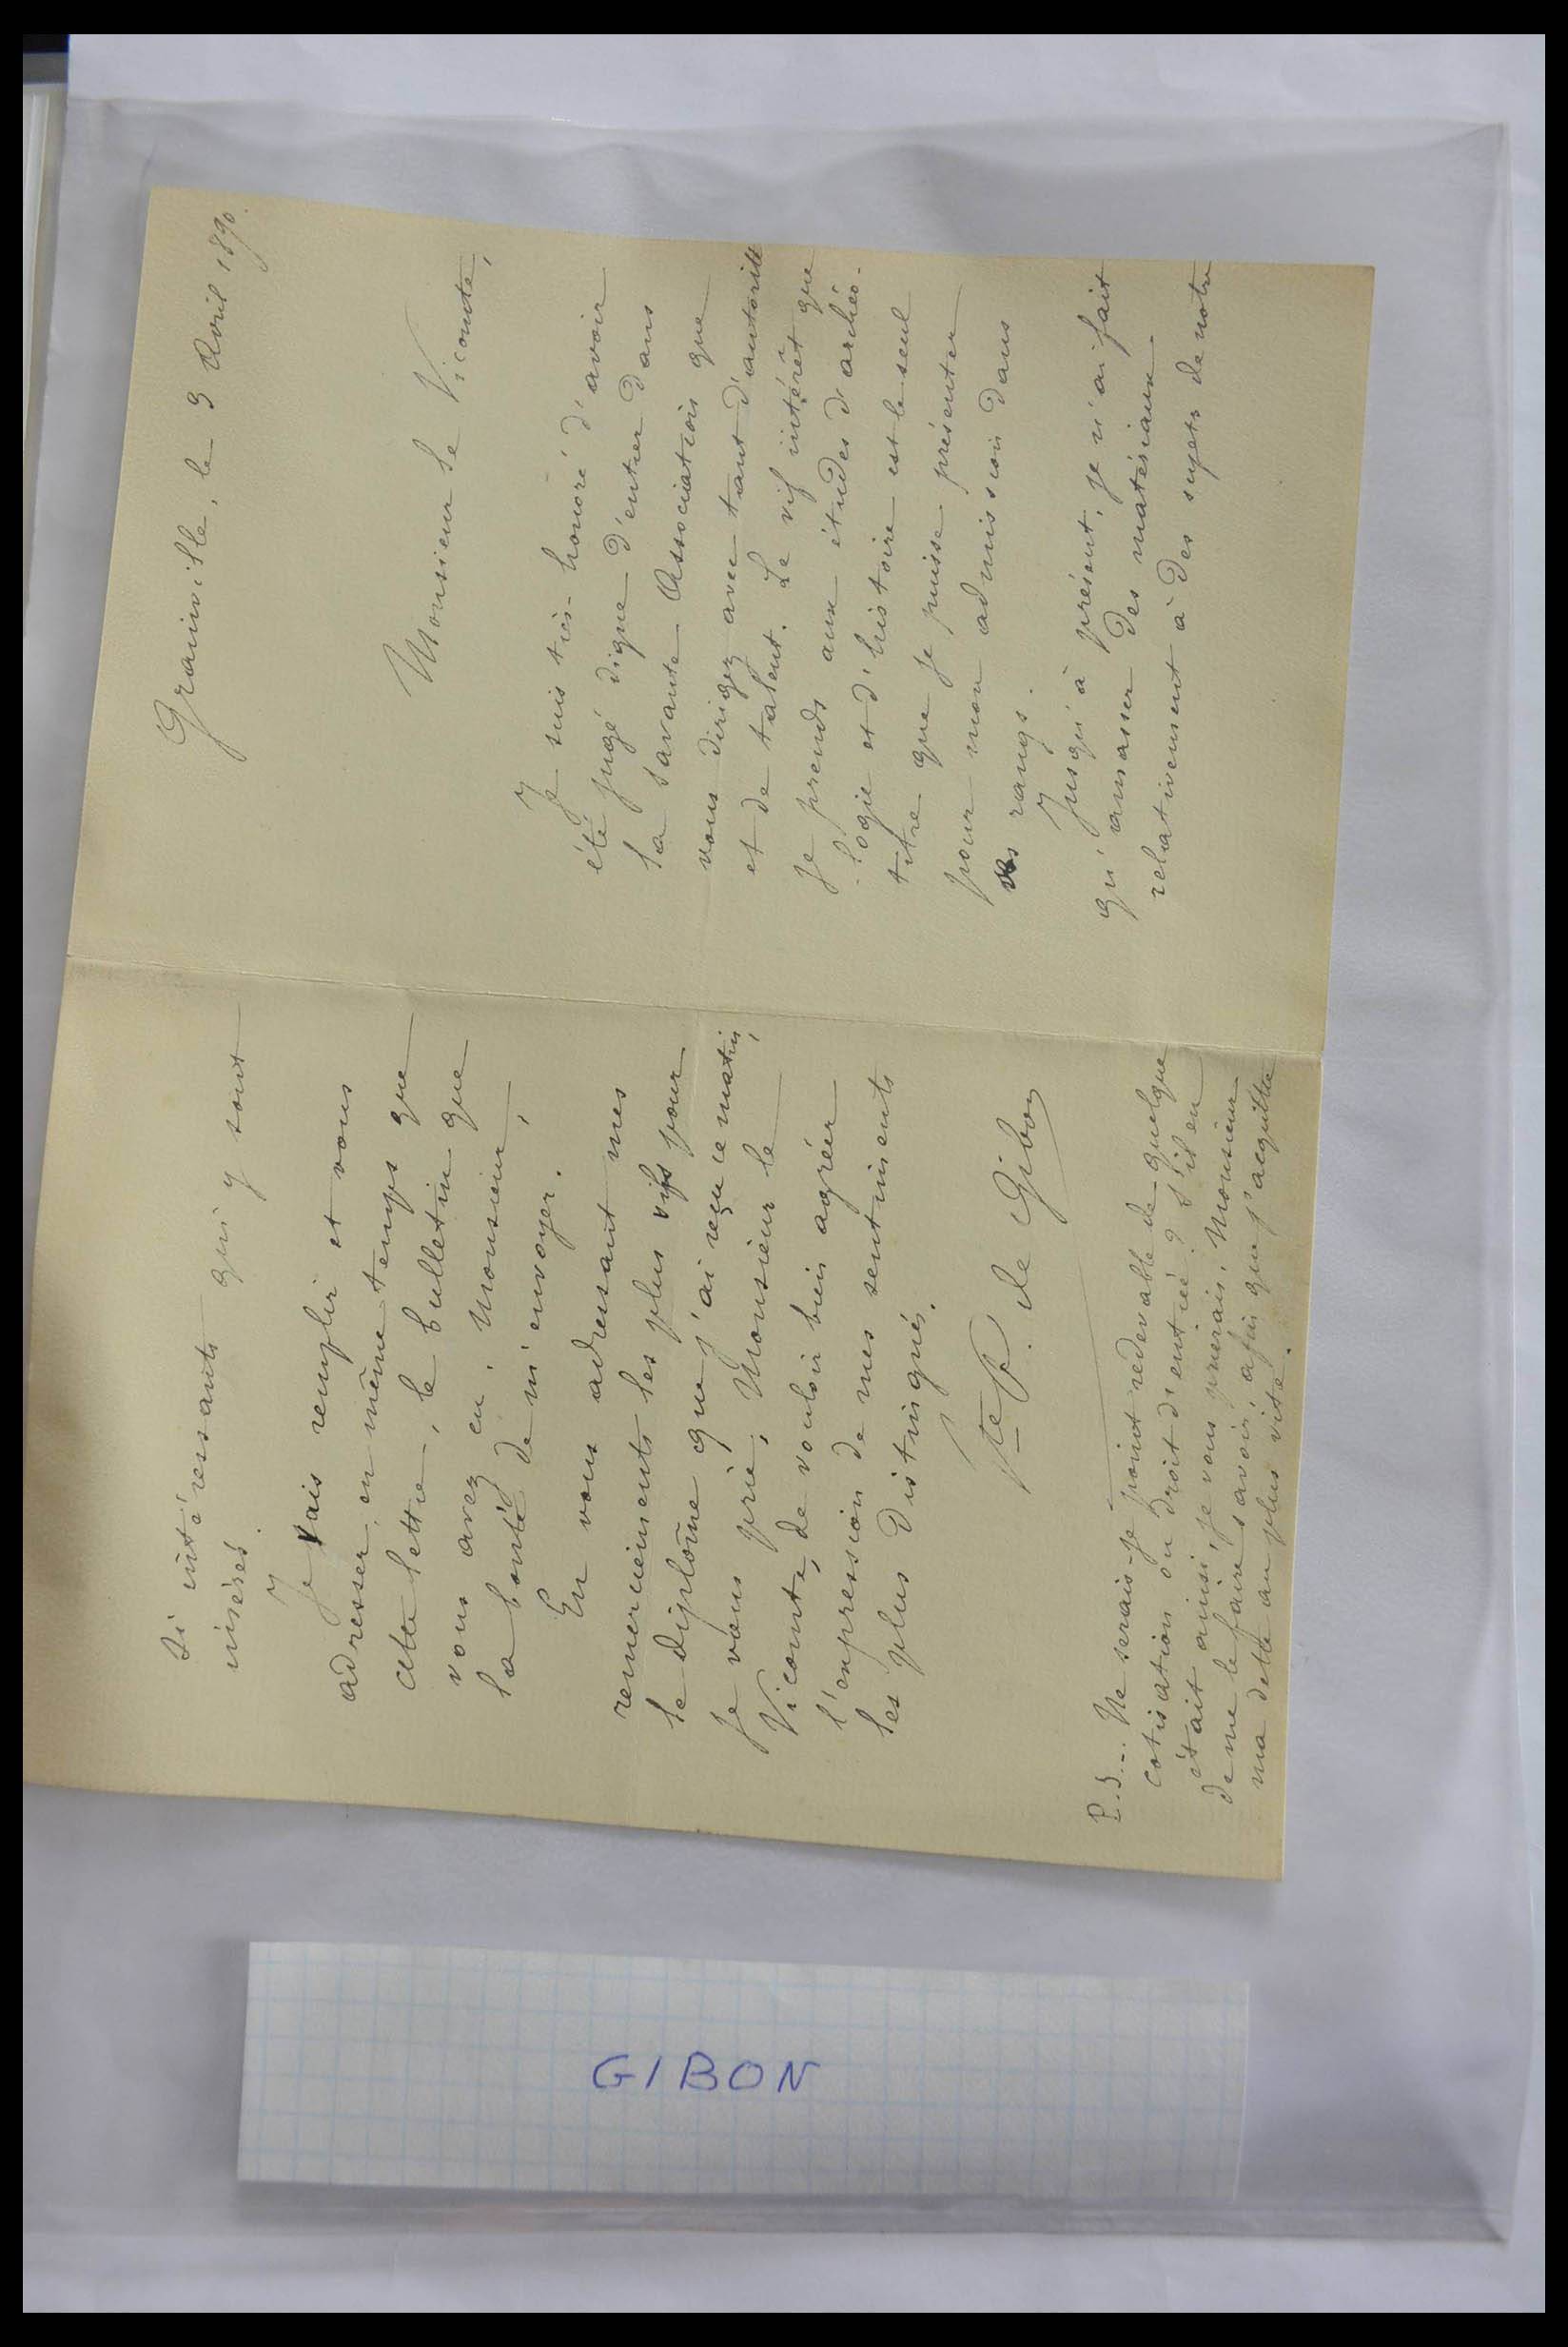 Grainville, le 3 Avril 1890.
Monsieur le Vicomte,
Je suis très-honoré d'avoir
été jugé digne d'entrer dans
la savante Association que
vous dirigez avec tant d'autorité
et de talent. Le vif intérêt que
je prends aux études d'archéo-
-logie et d'histoire est le seul
titre que je puisse présenter
pour mon admission dans
vos rangs.
Jusqu'à présent, je n'ai fait
qu'amasser des matériaux
relativement à des sujets de notre
si intéressants qui y sont
insérés.
Je vais remplir et vous
adresser, en même temps que
cette lettre, le bulletin que
vous avez eu, Monsieur,
la bonté de m'envoyer.
En vous adressant mes
remerciements les plus vifs pour
le diplôme que j'ai reçu ce matin,
je vous prie, Monsieur le
Vicomte, de vouloir bien agréer
l'expression de mes sentiments
les plus distingués.
Vte P. de Gibon
P.S.- Ne serais-je point redevable de quelque
cotisation ou droit d'entrée ? S'il en
était ainsi, je vous prierais, Monsieur
de me le faire savoir, afin que j'acquitte
ma dette au plus vite.
GIBON